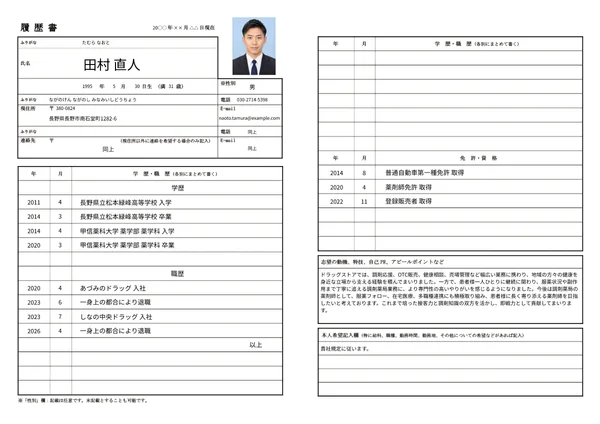 履 歴 書
20〇〇 年 ×× 月 △△ 日現在
ふりがな たむら なおと
氏名 田村 直人
1995 年 5 月 30 日生 (満 31 歳)
※性別 男
ふりがな ながのけん ながのし みなみいしどうちょう
電話 030-2714-5398
現住所 〒 380-0824
長野県長野市南石堂町1282-6
E-mail
naoto.tamura@example.com
ふりがな
電話 同上
連絡先 〒 (現住所以外に連絡を希望する場合のみ記入)
同上
E-mail
同上
年 月 学 歴・職 歴 (各別にまとめて書く)
学歴
2011 4 長野県立松本緑峰高等学校 入学
2014 3 長野県立松本緑峰高等学校 卒業
2014 4 甲信薬科大学 薬学部 薬学科 入学
2020 3 甲信薬科大学 薬学部 薬学科 卒業
職歴
2020 4 あづみのドラッグ 入社
2023 6 一身上の都合により退職
2023 7 しなの中央ドラッグ 入社
2026 4 一身上の都合により退職
以上
※「性別」欄：記載は任意です。未記載とすることも可能です。
年 月 学 歴・職 歴 (各別にまとめて書く)
年 月 免 許・資 格
2014 8 普通自動車第一種免許 取得
2020 4 薬剤師免許 取得
2022 11 登録販売者 取得
志望の動機、特技、自己 PR、アピールポイントなど
ドラッグストアでは、調剤応需、OTC販売、健康相談、売場管理など幅広い業務に携わり、地域の方々の健康を
身近な立場から支える経験を積んでまいりました。一方で、患者様一人ひとりに継続的に関わり、服薬状況や副作
用まで丁寧に追える調剤薬局業務に、より専門性の高いやりがいを感じるようになりました。今後は調剤薬局の
薬剤師として、服薬フォロー、在宅医療、多職種連携にも積極取り組み、患者様に長く寄り添える薬剤師を目指
したいと考えております。これまで培った接客力と調剤知識の双方を活かし、即戦力として貢献してまいりま
す。
本人希望記入欄 (特に給料、職種、勤務時間、勤務地、その他についての希望などがあれば記入)
貴社規定に従います。